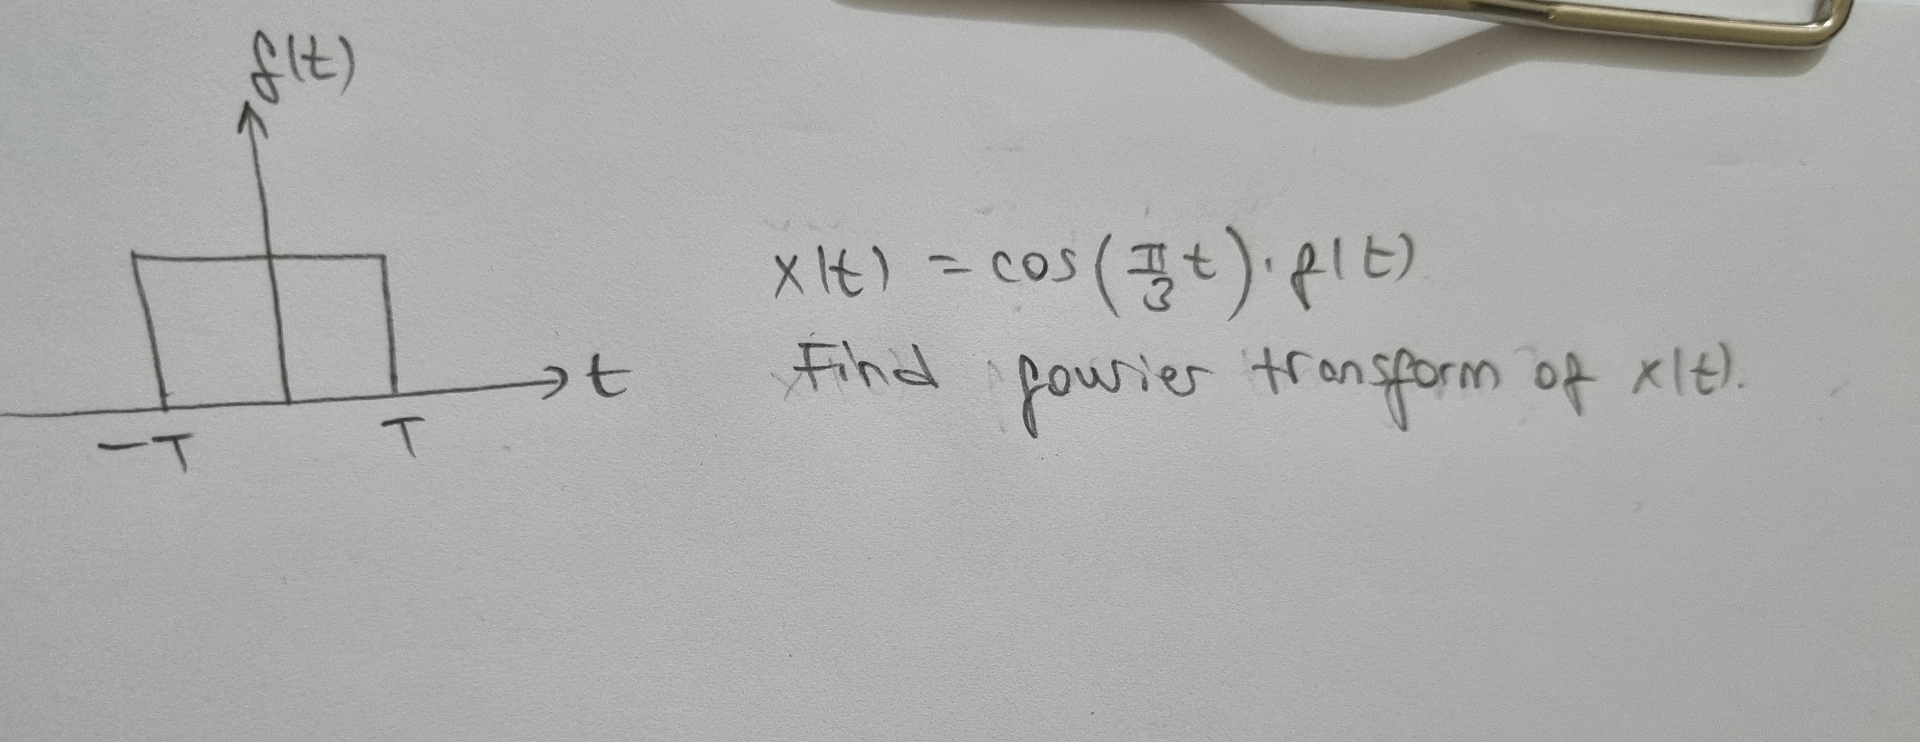 f(t)
x(t) = cos(π/3 t) · f(t)
Find fourier transform of x(t).
t
-T T